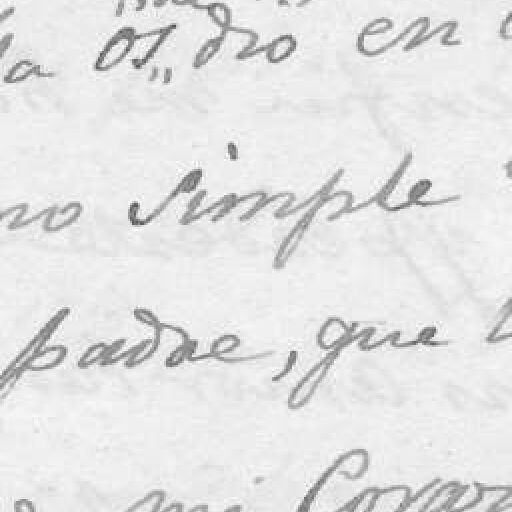 la os,, dro en
no simple
padre, que
mi Corar